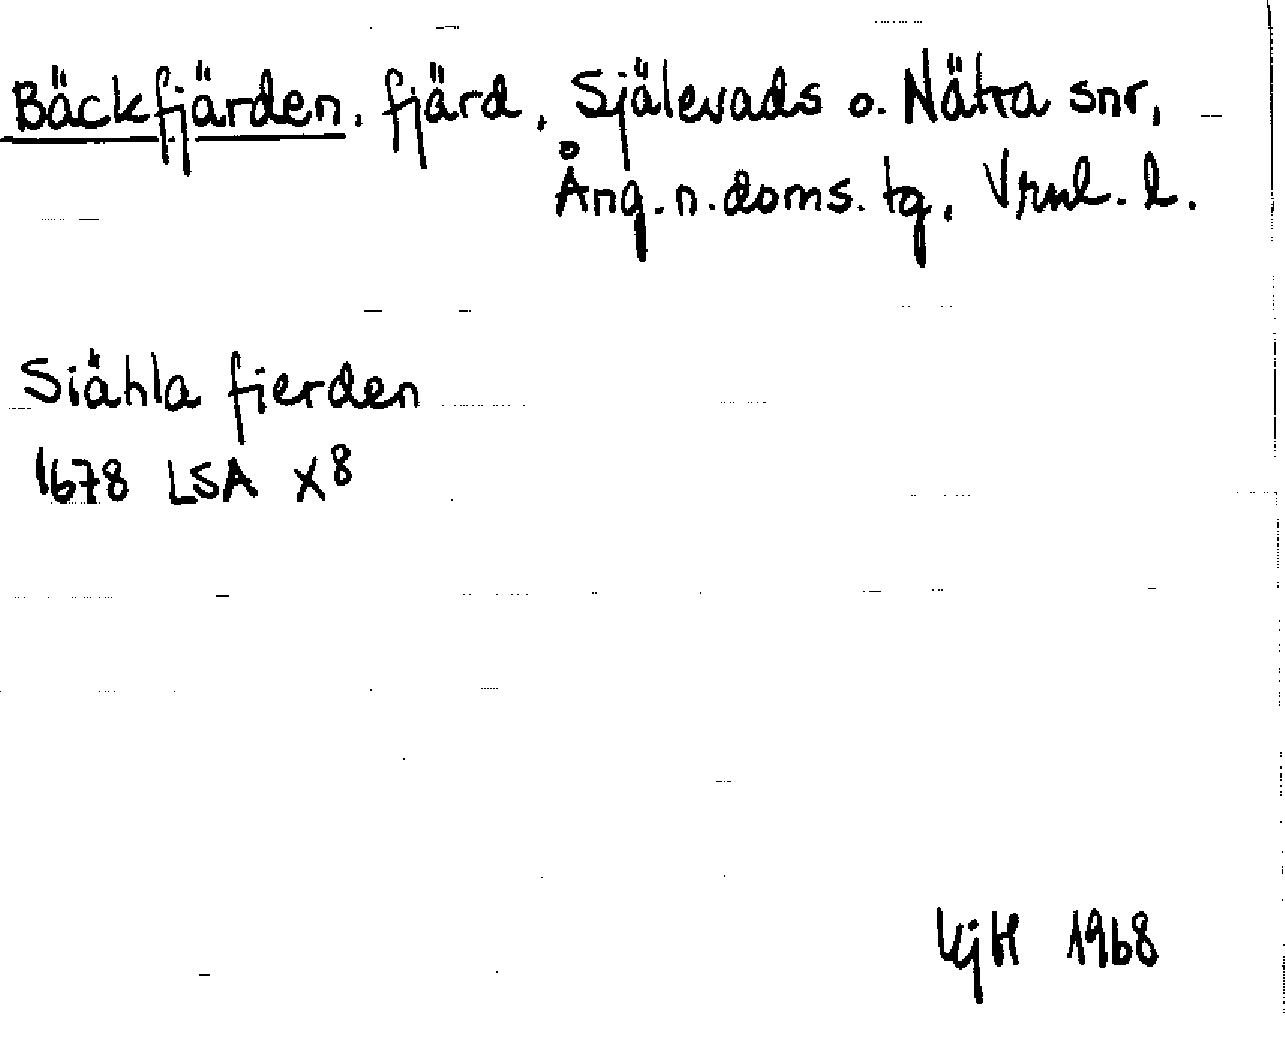 Bäckfjärden, fjärd, Själevads o. Nätra snr,
Ång. n. doms. tg, Vrnl. l.
Siähla fierden
1678 LSA X8
1968